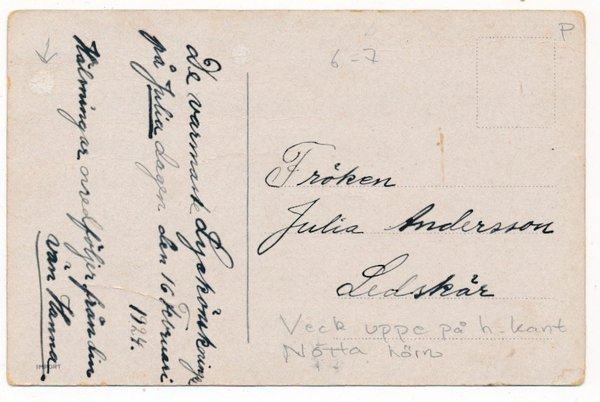 De varmast Lyckönskningar
på Julia dagen den 16 Februari
1924.
Hälningar medföljer från din
vän Hanna
IMPORT
6-7
P
Fröken
Julia Andersson
Ledskär
Veck uppe på h-kant
Nötta hörn